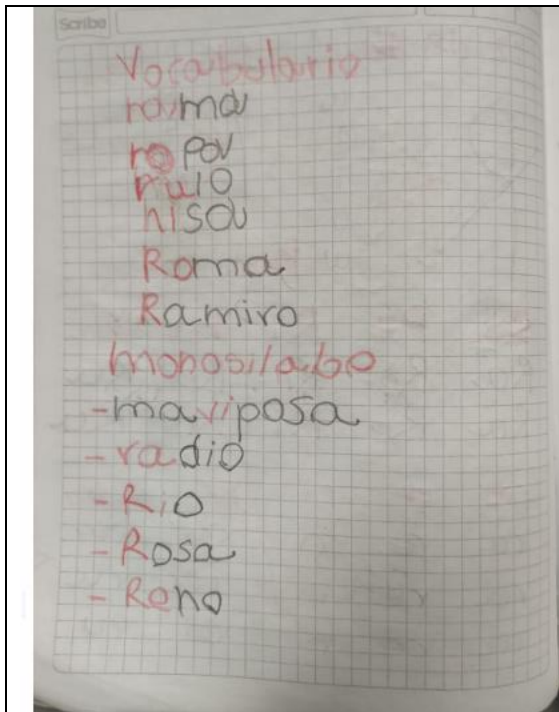 Scribe
Vocabulario
rama
ropa
rulo
risa
Roma
Ramiro
monosilabo
-mariposa
-radio
-Rio
-Rosa
-Reno